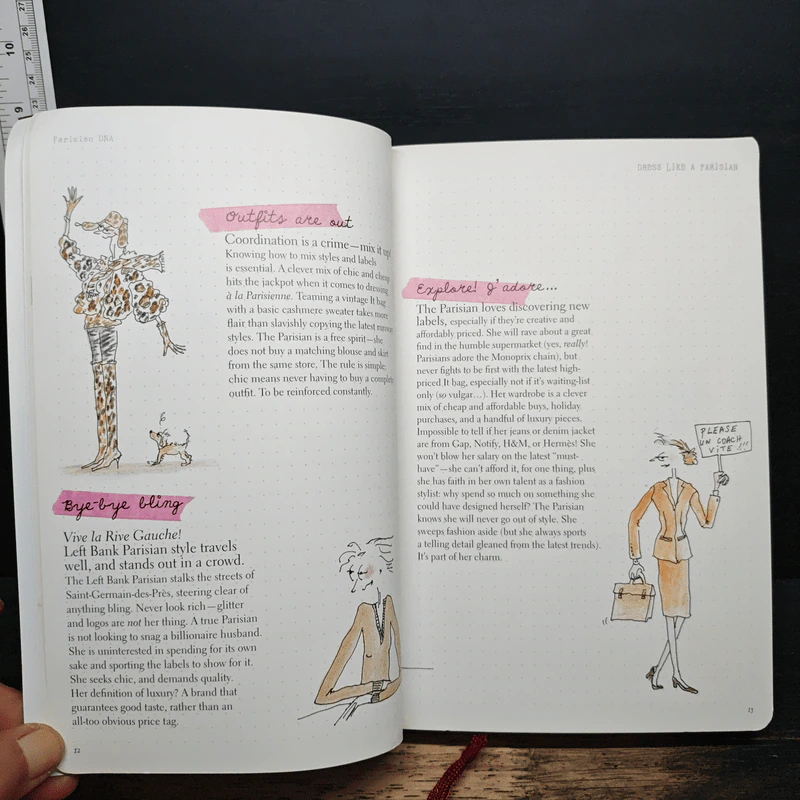 Parisian DNA
Outfits are out
Coordination is a crime—mix it up!
Knowing how to mix styles and labels
is essential. A clever mix of chic and cheap
hits the jackpot when it comes to dressing
à la Parisienne. Teaming a vintage It bag
with a basic cashmere sweater takes more
flair than slavishly copying the latest runway
styles. The Parisian is a free spirit—she
does not buy a matching blouse and skirt
from the same store. The rule is simple:
chic means never having to buy a complete
outfit. To be reinforced constantly.
Bye-bye bling
Vive la Rive Gauche!
Left Bank Parisian style travels
well, and stands out in a crowd.
The Left Bank Parisian stalks the streets of
Saint-Germain-des-Près, steering clear of
anything bling. Never look rich—glitter
and logos are not her thing. A true Parisian
is not looking to snag a billionaire husband.
She is uninterested in spending for its own
sake and sporting the labels to show for it.
She seeks chic, and demands quality.
Her definition of luxury? A brand that
guarantees good taste, rather than an
all-too obvious price tag.
12
DRESS LIKE A PARISIAN
Explore! J'adore...
The Parisian loves discovering new
labels, especially if they're creative and
affordably priced. She will rave about a great
find in the humble supermarket (yes, really!
Parisians adore the Monoprix chain), but
never fights to be first with the latest high-
priced It bag, especially not if it's waiting-list
only (so vulgar...). Her wardrobe is a clever
mix of cheap and affordable buys, holiday
purchases, and a handful of luxury pieces.
Impossible to tell if her jeans or denim jacket
are from Gap, Notify, H&M, or Hermès! She
won't blow her salary on the latest "must-
have"—she can't afford it, for one thing, plus
she has faith in her own talent as a fashion
stylist: why spend so much on something she
could have designed herself? The Parisian
knows she will never go out of style. She
sweeps fashion aside (but she always sports
a telling detail gleaned from the latest trends).
It's part of her charm.
PLEASE
UN COACH
VITE !!!
13
9
10
23
24
25
26
27